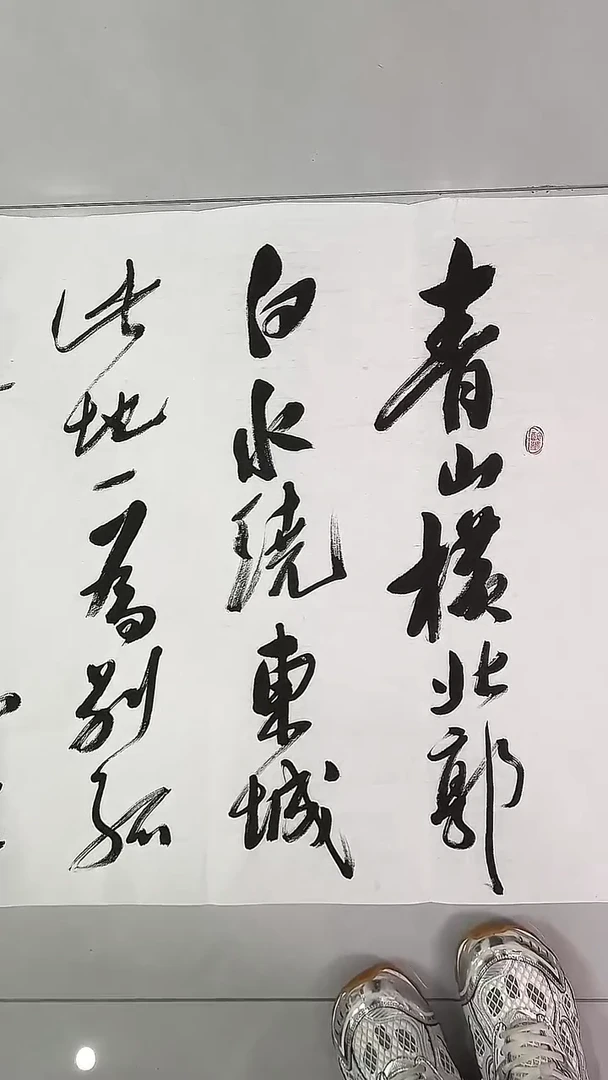 青山橫北郭
白水繞東城
此地一為別孤